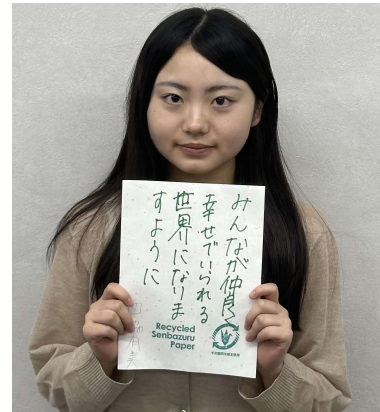 みんなが仲良く
幸せでいられる
世界になりま
すように
Recycled
Senbazuru
Paper